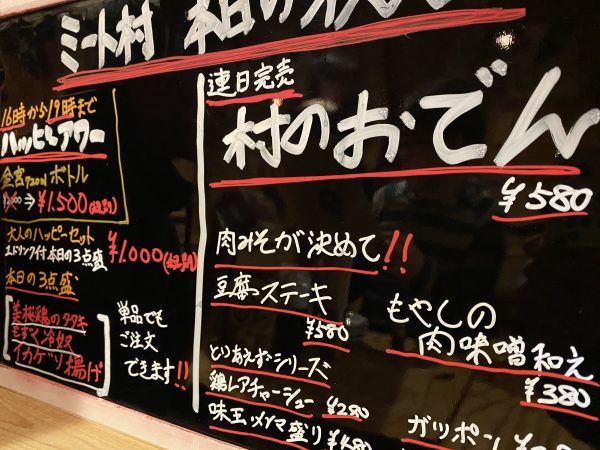 ミート村 本日のオススメ
16時から19時まで
ハッピーアワー
金宮720mlボトル
⇒¥1.500(税別)
大人のハッピーセット
1ドリンク付 本日の3点盛
¥1.000(税別)
本日の3点盛
美桜鶏のタタキ
もずく冷奴
イカゲソ揚げ
単品でも
ご注文
できます!!
連日完売
村のおでん
¥580
肉みそが決めて!!
豆腐ステーキ
¥580
とりあえずシリーズ
鶏レアチャーシュー ¥280
味玉メンマ盛り ¥480
もやしの
肉味噌和え
¥380
ガツポン